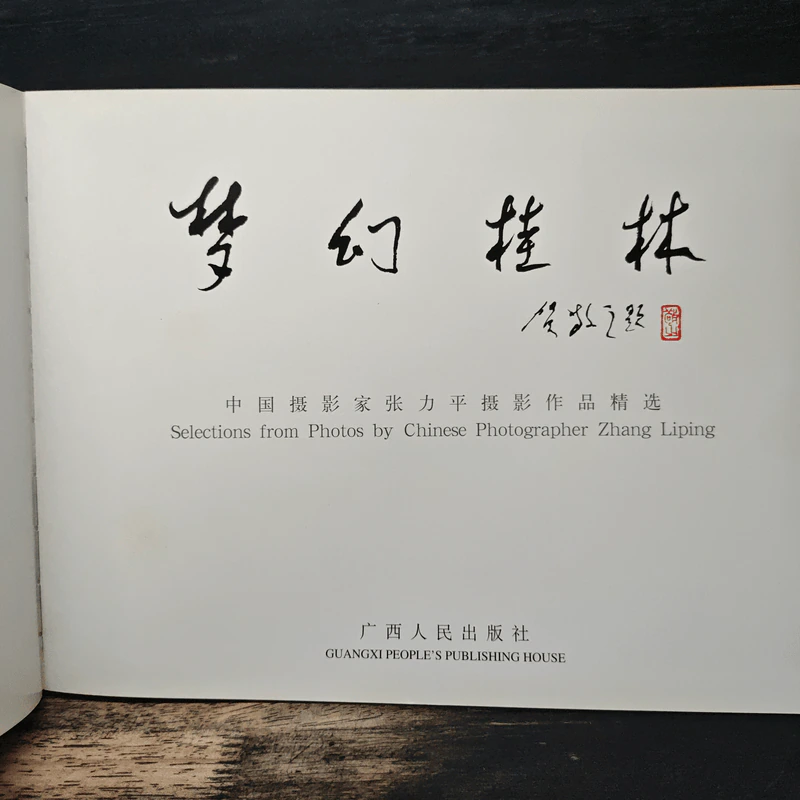 梦幻桂林
敬之题
中国摄影家张力平摄影作品精选
Selections from Photos by Chinese Photographer Zhang Liping
广西人民出版社
GUANGXI PEOPLE'S PUBLISHING HOUSE